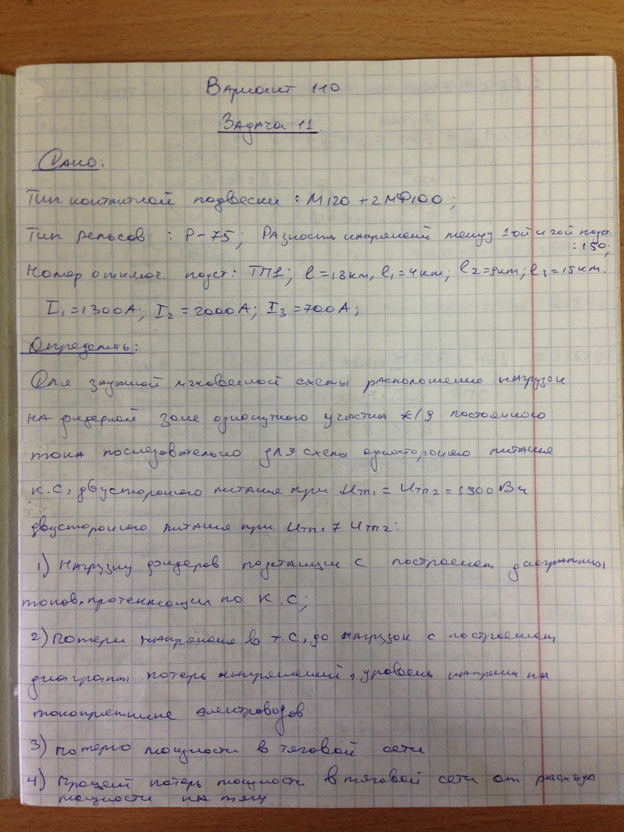 Вариант 110
Задача 11
Дано:
Тип контактной подвески : М120 + 2МФ100 ;
Тип рельсов : Р-75; Разность напряжений между 1ой и 2ой подст
: 150;
Номер отключ. подст: ТП1; l = 13км, l₁=4км; l₂=9км; l₃=15км.
I₁=1300А; I₂=2000А; I₃=700А;
Определить:
Для заданой мгновенной схемы расположение нагрузок
на фидерной зоне однопутного участка ж/д постоянного
тока последовательно для схемы одностороннего питания
К.С, двустороннего питания при Uтп₁ = Uтп₂ = 3300 В и
двустороннего питания при Uтп₁ ≠ Uтп₂:
1) Нагрузку фидеров подстанции с построением диаграммы
токов, протекающим по К.С;
2) Потери напряжения в Т.С, до нагрузок с построением
диаграмы потерь напряжений, уровень напряж на
токоприемнике электровозов
3) потерю мощности в тяговой сети
4) Процент потерь мощности в тяговой сети от расхода
мощности на тягу